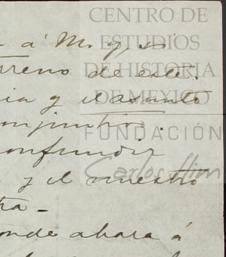 CENTRO DE
ESTUDIOS
DE HISTORIA
DE MEXICO
FUNDACIÓN
Carlos Slim
á M. y
rreno de este
ia y el asunto
conjunto
confundir
y el nuestro
tra-
onde ahora á